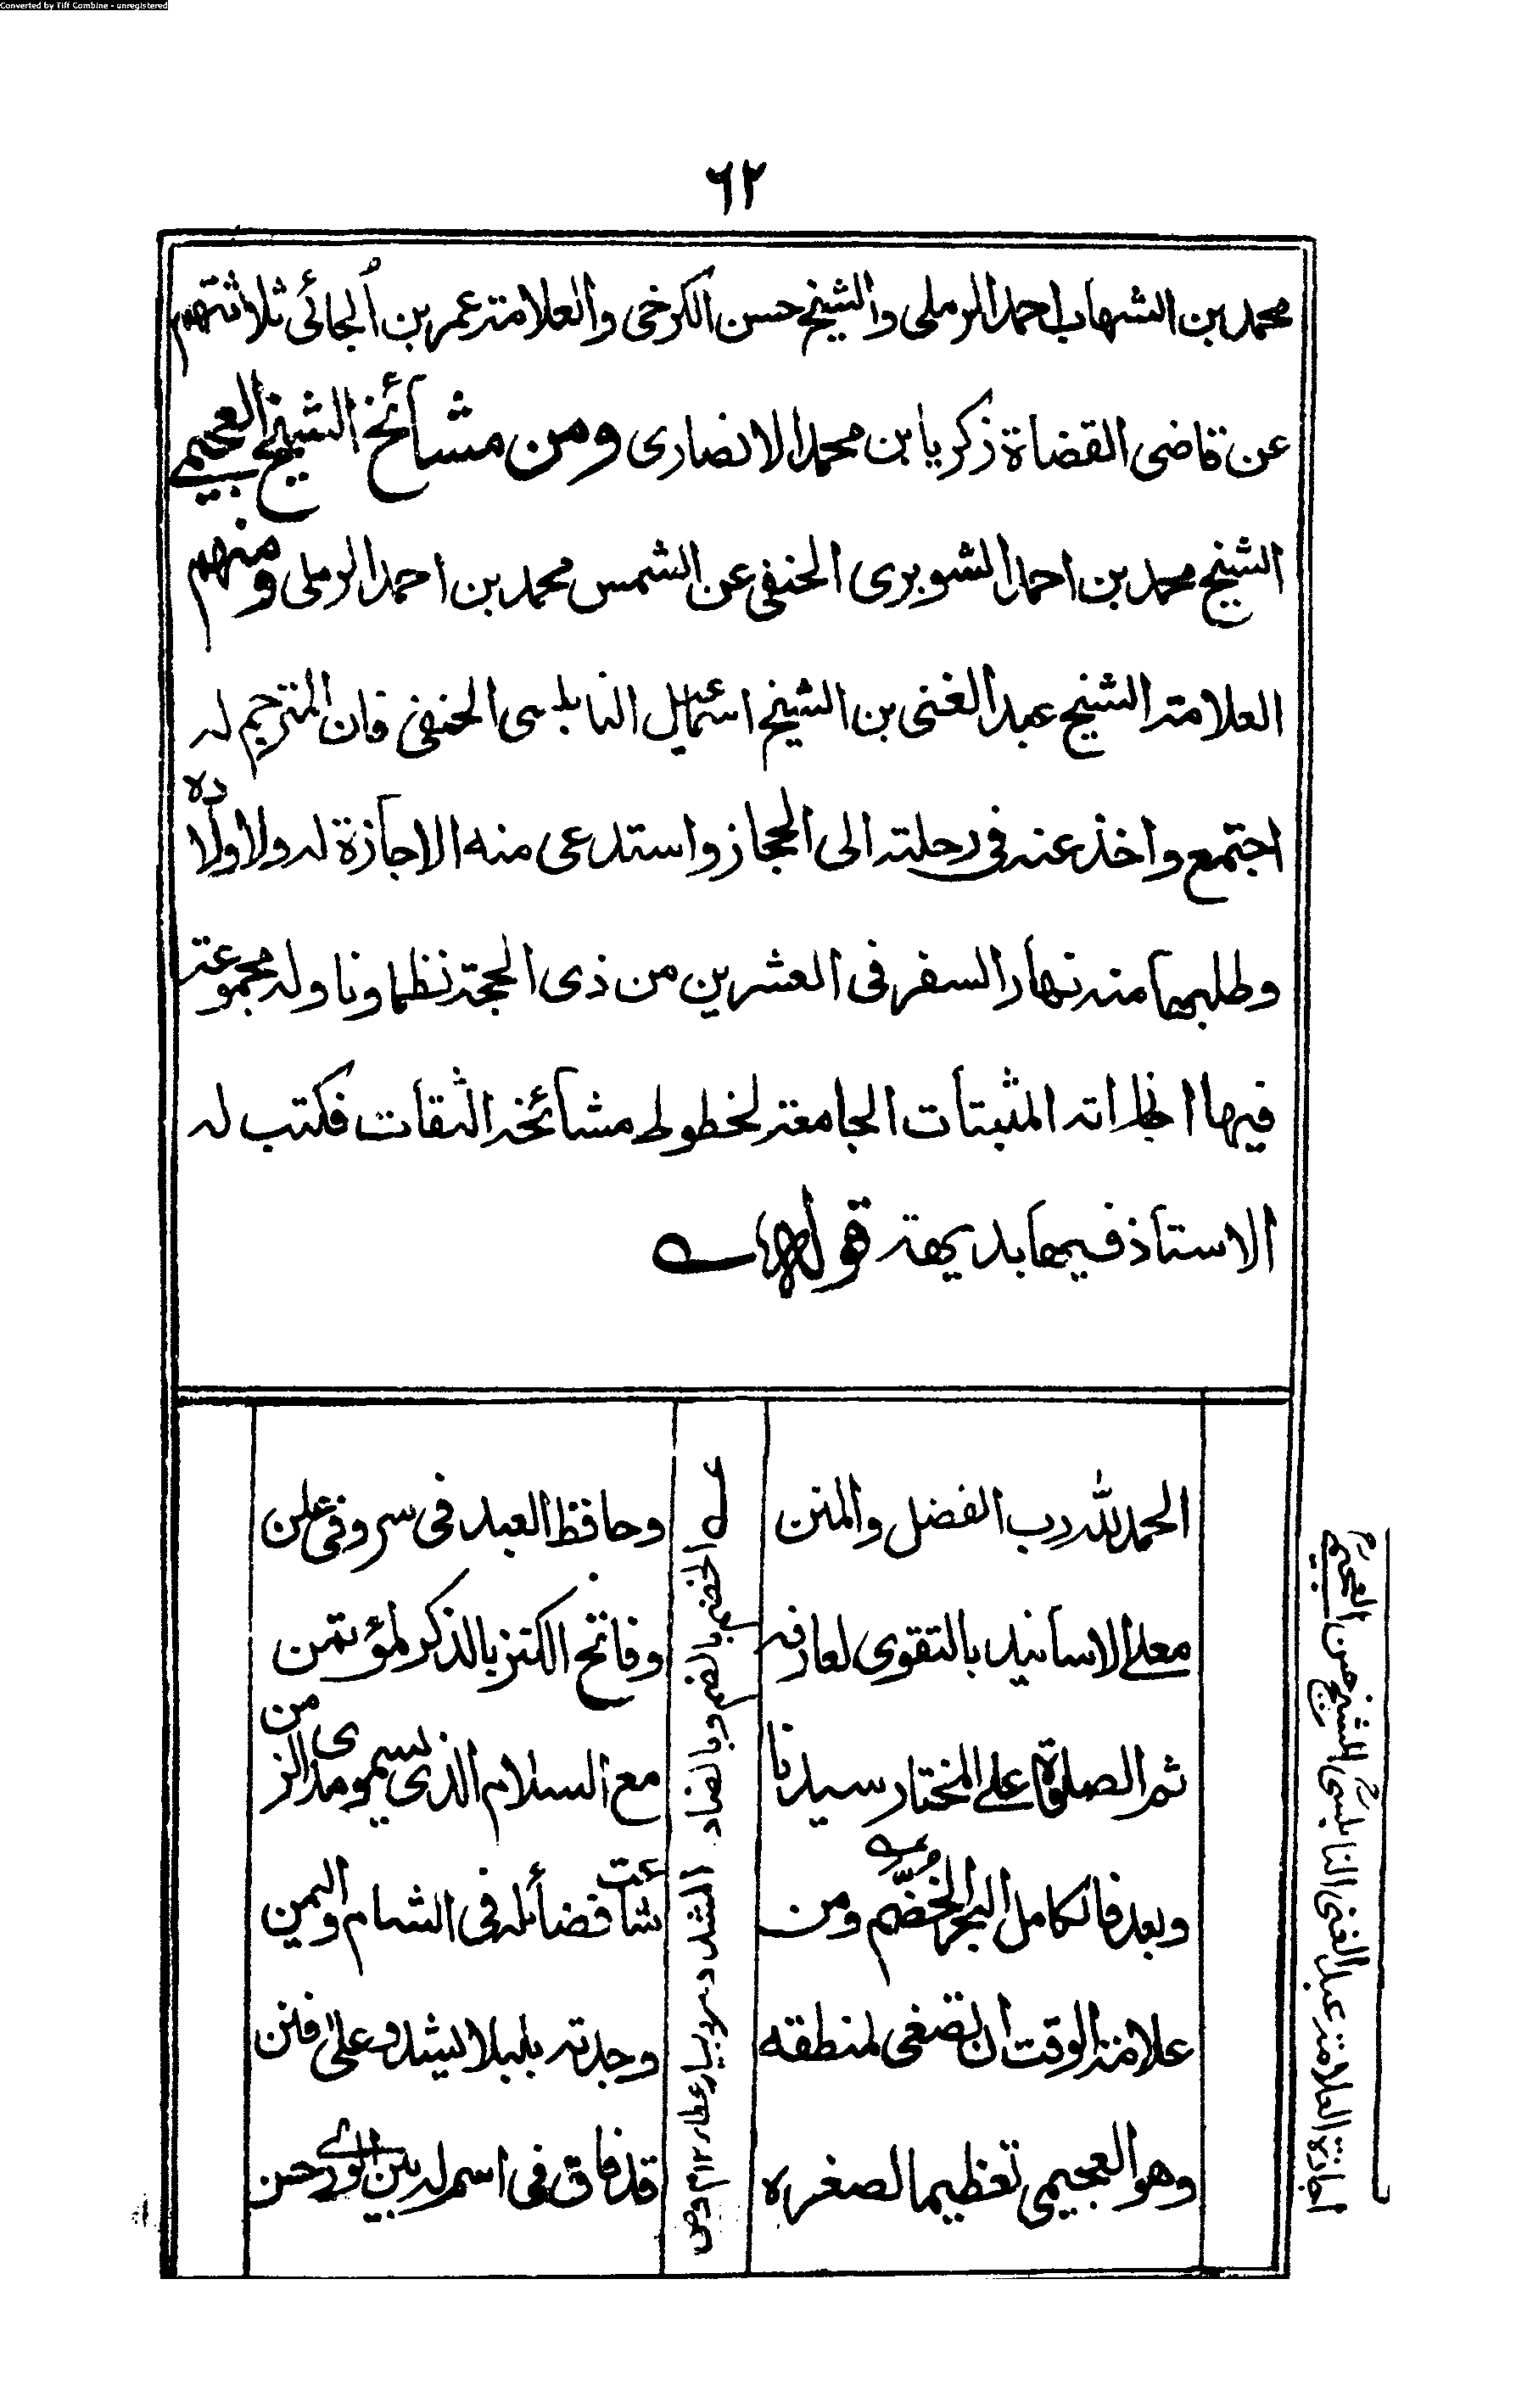 Converted by Tiff Combine - unregistered
٦٢
محمد بن الشهاب احمد الرملى والشيخ حسن الكرخى والعلامة عمر بن الجائى ثلاثتهم
عن قاضى القضاة زكريا بن محمد الانصارى ومن مشائخ الشيخ العجيمى
الشيخ محمد بن احمد الشوبرى الحنفى عن الشمس محمد بن احمد الرملى ومنهم
العلامة الشيخ عبد الغنى بن الشيخ اسمٰعيل النابلسى الحنفى فان المترجم له
اجتمع واخذ عنه فى رحلته الى الحجاز واستدعى منه الاجازة له ولاولاده
وطلبها منه نهار السفر فى العشرين من ذى الحجة نظما وناوله مجموعة
فيها المثبتات الجامعة لخطوط مشائخه الثقات فكتب له
الاستاذ فيها بديهة قوله
الحمد لله رب الفضل والمنن
وحافظ العبد فى سر وفى علن
معلى الاسانيد بالتقوى لعارفه
وفاتح الكنز بالذكر لمؤتمن
ثم الصلوة على المختار سيدنا
مع السلام الذى يسمو مدى الزمن
وبعد فالكامل البحر الخُضّم ومن
شاعت فضائله فى الشام واليمن
علامة الوقت ان تصغى لمنطقه
وجدته بلبلا يشدو على فنن
وهو العجيمى تعظيما لصغره
قد فاق فى اسم له بين الورى حسن
الخضم بالضم وبالضاد المشدد بسيار عطار ١٢ م وص
اجازة العلامة عبد الغنى النابلسى الشيخ حسن العجيمى